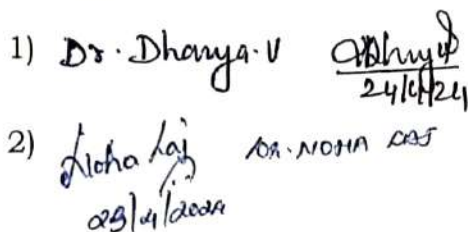 1) Dr. Dhanya. V Dhanya
24/4/24
2) Noha Laj DR. NOHA LAJ
23/4/2024